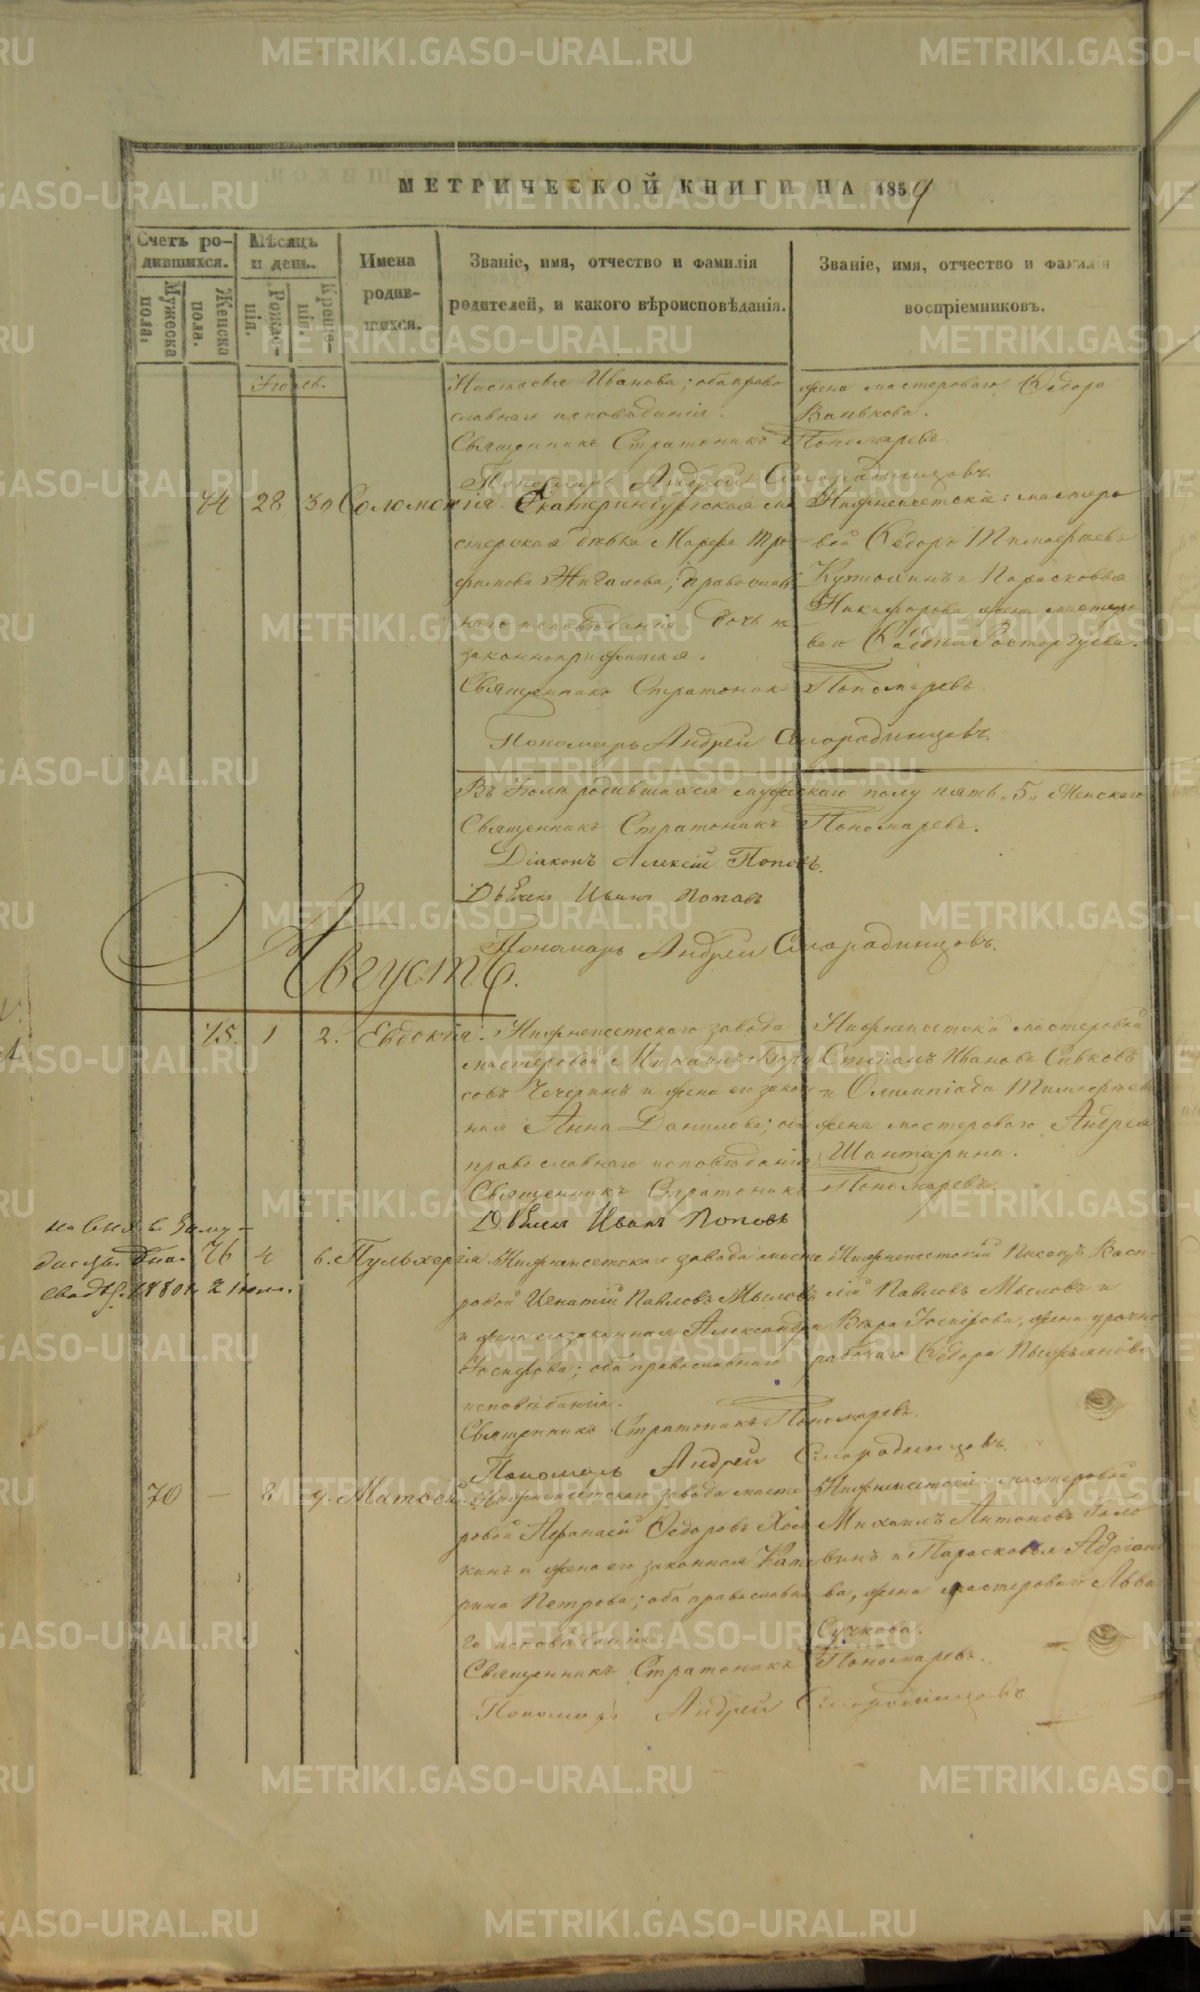 МЕТРИЧЕСКОЙ КНИГИ НА 1859
Счетъ ро-
дившихся.
Мужеска
пола.
Женска
пола.
Мѣсяцъ
и день.
Рожде-
нія.
Креще-
нія.
Имена
родив-
шихся.
Званіе, имя, отчество и фамилія
родителей, и какого вѣроисповѣданія.
Званіе, имя, отчество и фамилія
воспріемниковъ.
Настасья Иванова; оба право
славнаго исповѣданія.
Священникъ Стратоникъ Пономаревъ
Пономарь Андрей Смородинцовъ.
жена мастероваго Ѳедора
Ванькова.
74 28 30 Соломонія. Екатеринбургская ма
стерская дѣвка Марфа Тро
фимова Жигалова; православ
наго исповѣданія. Дочь не
законноприжитая.
Священникъ Стратоникъ Пономаревъ
Пономарь Андрей Смородинцовъ.
Нижнеисетскій: мастеро
вой Ѳедоръ Тимофѣевъ
и Парасковья
Никифорова жена мастеро
ваго
Въ Іюлѣ родившихся мужескаго полу пять "5" Женскаго
Священникъ Стратоникъ Пономаревъ.
Діаконъ Алексій Поповъ.
Иванъ Поповъ
Пономарь Андрей Смородинцовъ.
Августъ.
75. 1 2. Евдокія. Нижнеисетскаго завода
мастеровой Михаилъ Бори
совъ Чечеринъ и жена его закон
ная Анна Данилова; оба
православнаго исповѣданія.
Священникъ Стратоникъ Пономаревъ
Иванъ Поповъ
Нижнеисетскій мастеровой
Степанъ Ивановъ Сивковъ
и Олимпіада Тимофѣева
жена мастероваго Андрея
Шантарина.
76 4 6. Пульхерія. Нижнеисетскаго завода масте
ровой Игнатій Павловъ Мыловъ
и жена его законная Александра
Іосифова; оба православнаго
исповѣданія.
Священникъ Стратоникъ Пономаревъ.
Пономарь Андрей Смородинцовъ.
Нижнеисетскій Писецъ Васи
лій Павловъ Мыловъ и
Вѣра Іосифова, жена урочно
рабочаго Ѳедора
70 — 8 9. Матѳей. Нижнеисетскаго завода масте
ровой Аѳанасій Ѳедоровъ Хом
кинъ и жена его законная Кате
рина Петрова; оба православна
го исповѣданія.
Священникъ Стратоникъ Пономаревъ.
Пономарь Андрей Смородинцовъ
Нижнеисетскій мастеровой
Михаилъ Антоновъ Голо
винъ и Парасковья Адріано
ва, жена мастероваго Льва
Сучкова.
METRIKI.GASO-URAL.RU